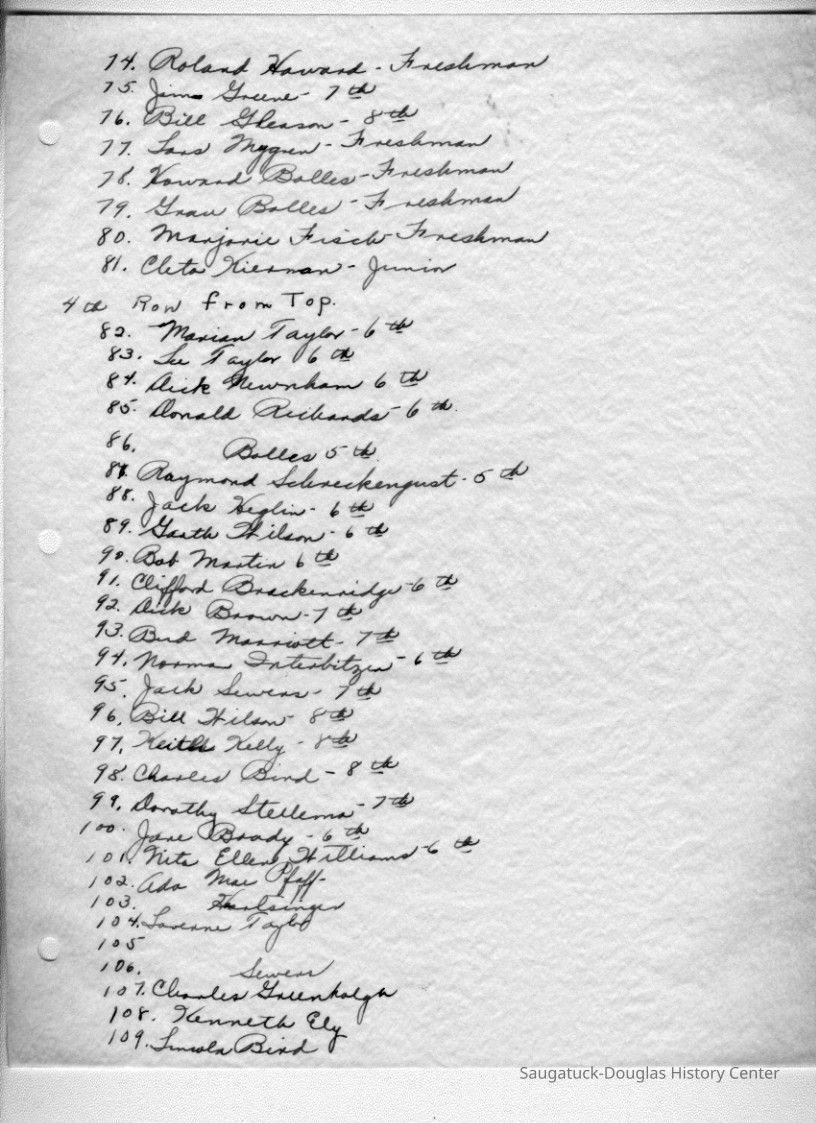 74. Roland Howard - Freshman
75. Jim Greene - 7th
76. Bill Gleason - 8th
77. Lars Nygren - Freshman
78. Howard Bolles - Freshman
79. Grau Bolles - Freshman
80. Marjorie Fisch - Freshman
81. Cleta Kiernan - Junior
4th Row from Top.
82. Marian Taylor - 6th
83. Lee Taylor 6th
84. Dick Newnham 6th
85. Donald Richards - 6th.
86. Bolles 5th.
87. Raymond Schreckengust - 5th
88. Jack Heglin - 6th
89. Garth Wilson - 6th
90. Bob Martin 6th
91. Clifford Brackenridge - 6th
92. Dick Brown - 7th
93. Bud Marriott - 7th
94. Norma Interbitzen - 6th
95. Jack Sewers - 7th
96. Bill Wilson - 8th
97. Keith Kelly - 8th
98. Charles Bird - 8th
99. Dorothy Stellema - 7th
100. Jane Brady - 6th
101. Nita Ellen Williams - 6th
102. Ada Mae Pfaff
103.
104. Laverne Taylor
105
106. Sewers
107. Charles Greenhalgh
108. Kenneth Ely
109. Lincoln Bird
Saugatuck-Douglas History Center